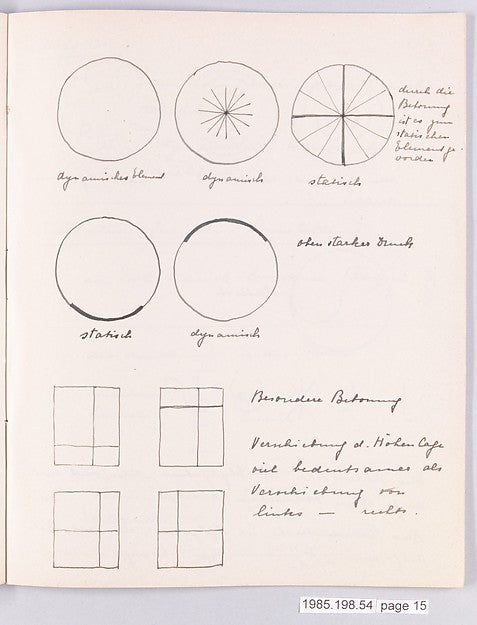 dynamisches Element
dynamisch
statisch
durch die
Betonung
ist es zum
statischen
Element ge-
worden
statisch
dynamisch
oben starker Druck
Besondere Betonung
Verschiebung d. Höhenlage
viel bedeutsamer als
Verschiebung von
links — rechts.
1985.198.54 page 15